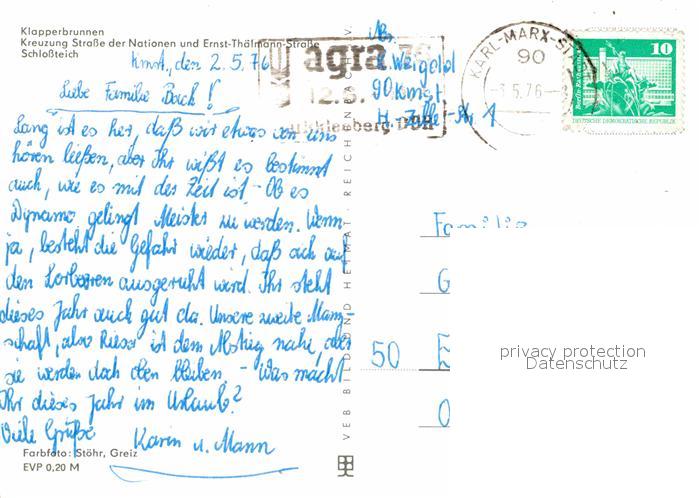 Klapperbrunnen
Kreuzung Straße der Nationen und Ernst-Thälmann-Straße
Schloßteich
Kmst., den 2.5.76
Liebe Familie Bock!
Lang ist es her, daß wir etwas von uns
hören ließen, aber Ihr wißt es bestimmt
auch, wie es mit der Zeit ist - Ob es
Dynamo gelingt Meister zu werden. Wenn
ja, besteht die Gefahr wieder, daß sich auf
den Lorbeeren ausgeruht wird. Ihr steht
dieses Jahr auch gut da. Unsere zweite Mann-
schaft, also Riesa ist dem Abstieg nahe, aber
sie werden doch oben bleiben. - Was macht
Ihr dieses Jahr im Urlaub?
Viele Grüße
Karin u. Mann
Farbfoto: Stöhr, Greiz
EVP 0,20 M
VEB BILD UND HEIMAT REICHENBACH I. V.
Abs.
R. Weigold
90 Kmst
H.-Zille-Str. 1
agra 76
12.5.
Markkleeberg DDR
KARL-MARX-ST
90
-3.5.76-
10
DEUTSCHE DEMOKRATISCHE REPUBLIK
Familie
G
50 E
O
privacy protection
Datenschutz